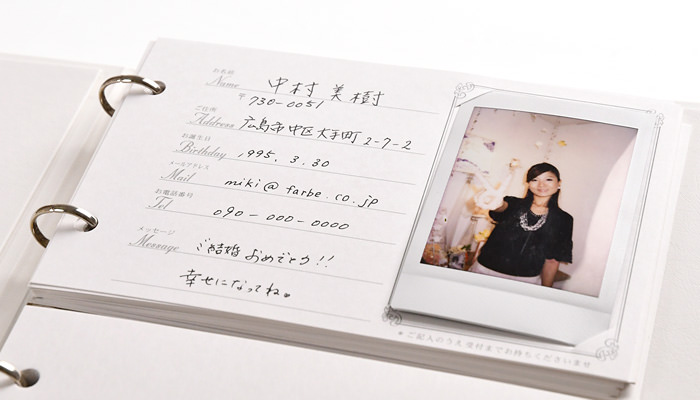 お名前
Name 中村 美樹
〒730-0051
ご住所
Address 広島市中区大手町2-7-2
お誕生日
Birthday 1995. 3. 30
メールアドレス
Mail miki@farbe.co.jp
お電話番号
Tel 090-000-0000
メッセージ
Message ご結婚おめでとう!!
幸せになってね。
*ご記入のうえ受付までお持ちくださいませ